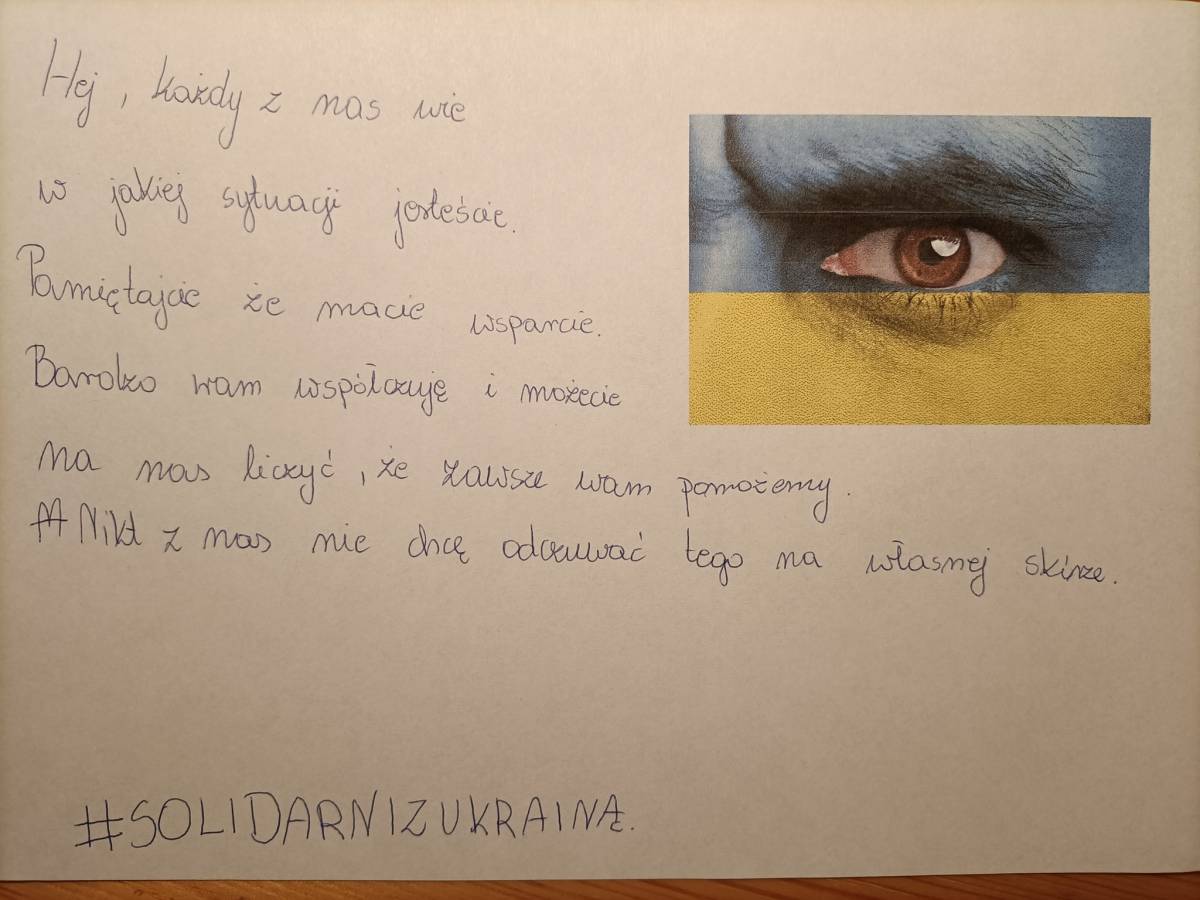 Hej, każdy z nas wie
w jakiej sytuacji jesteście.
Pamiętajcie że macie wsparcie.
Bardzo wam współczuję i możecie
na nas liczyć, że zawsze wam pomożemy.
Nikt z nas nie chcę odczuwać tego na własnej skórze.
#SOLIDARNIZUKRAINĄ.